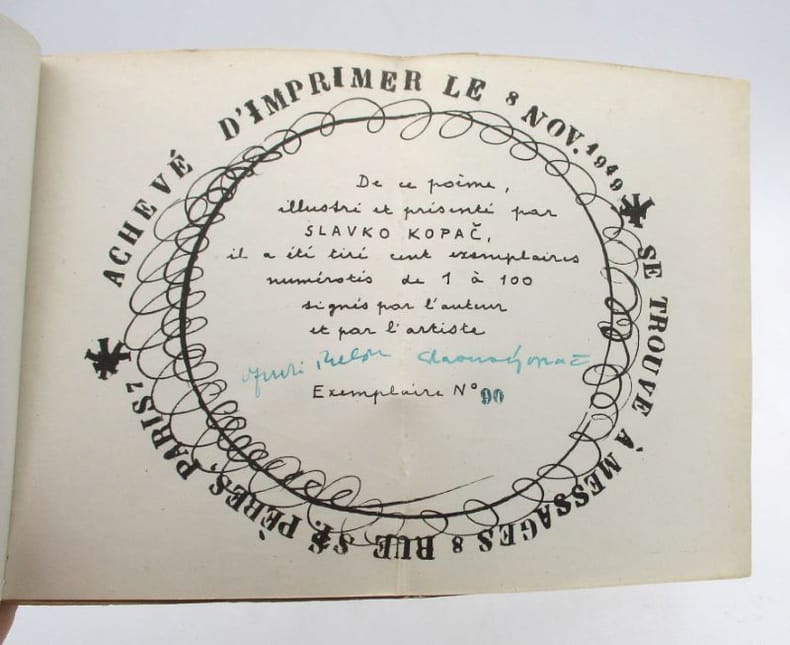 ACHEVÉ D'IMPRIMER LE 8 NOV. 1949
SE TROUVE À MESSAGES 8 RUE ST. PÈRES, PARIS 7
De ce poème,
illustré et présenté par
SLAVKO KOPAČ,
il a été tiré cent exemplaires
numérotés de 1 à 100
signés par l'auteur
et par l'artiste
Exemplaire N° 90